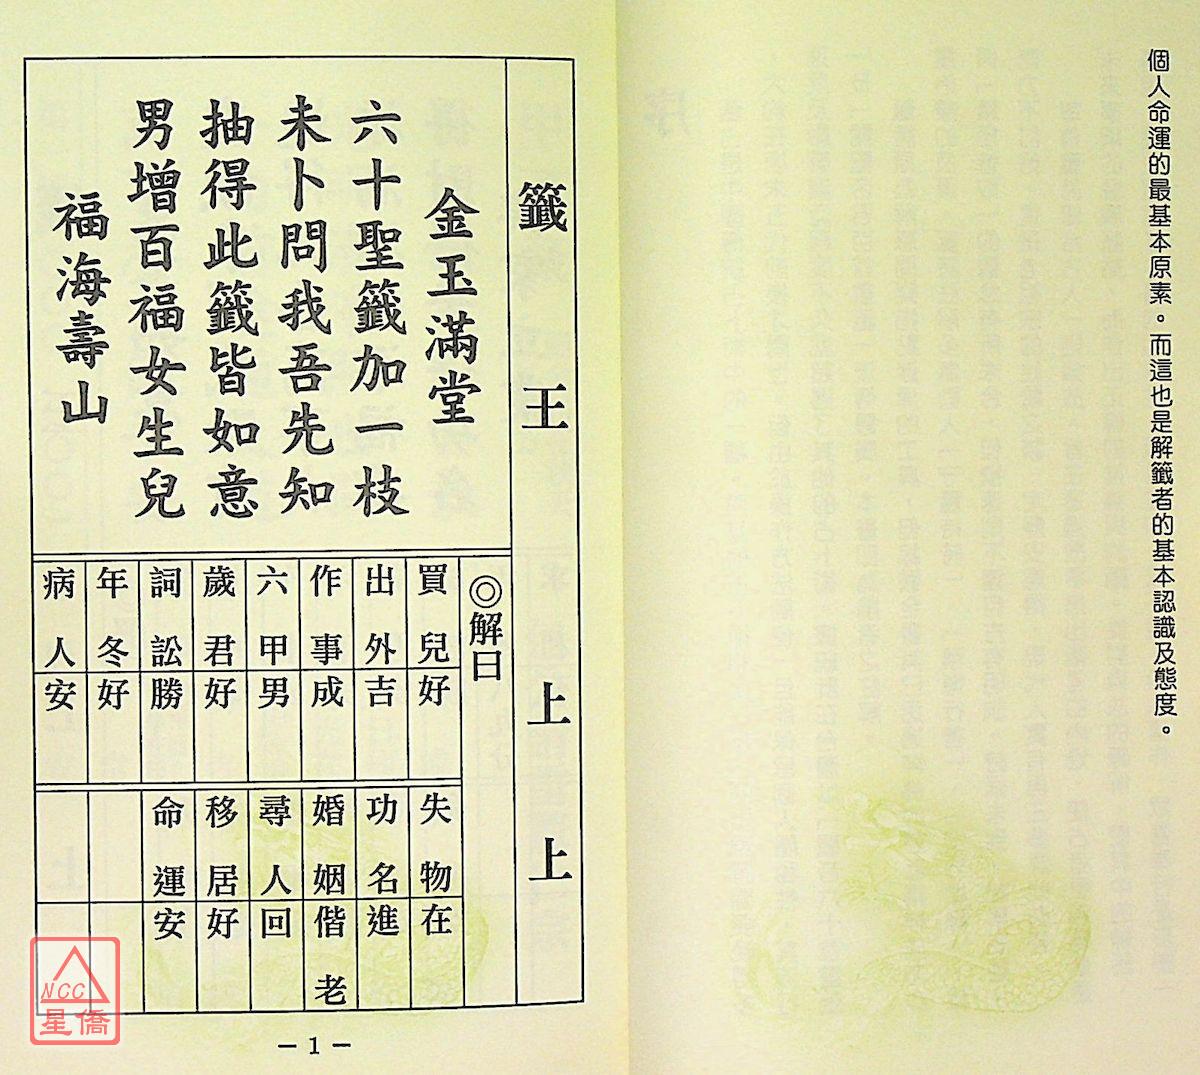 個人命運的最基本原素。而這也是解籤者的基本認識及態度。
籤王 上上
金玉滿堂
六十聖籤加一枝
未卜問我吾先知
抽得此籤皆如意
男增百福女生兒
福海壽山
◎解曰
買兒 好
出外 吉
作事 成
六甲 男
歲君 好
詞訟 勝
年冬 好
病人 安
失物 在
功名 進
婚姻 偕老
尋人 回
移居 好
命運 安
— 1 —
NCC
星僑